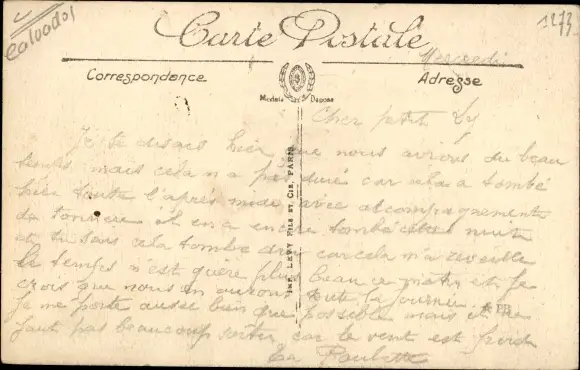 Calvados
1273
Carte Postale
Mercredi
Correspondance
Adresse
Modèle Déposé
IMP. LEVY FILS ET CIE, PARIS
Cher petit Ly
Je te disais hier que nous avions du beau
temps mais cela n'a pas duré car cela a tombé
hier toute l'après midi avec accompagnement
de tonnerre et en a encore tombé cette nuit
et tu sais cela tombe dru car cela m'a éveillé
le temps n'est guère plus beau ce matin et je
crois que nous en aurons toute la journée
Je me porte aussi bien que possible mais il ne
faut pas beaucoup sortir car le vent est froid
Ta Paulette